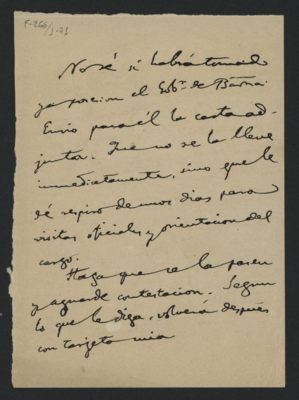 F-266/1-21
No sé si habrá tomado
ya posesion el Gobr. de Barna.
Envio para él la carta ad-
junta. Que no se la lleve
inmediatamente, sino que le
dé respiro de unos dias para
visitas oficiales y orientacion del
cargo.
Haga que se la pasen
y aguarde contestacion. Segun
lo que le diga, volverá despues
con tarjeta mia